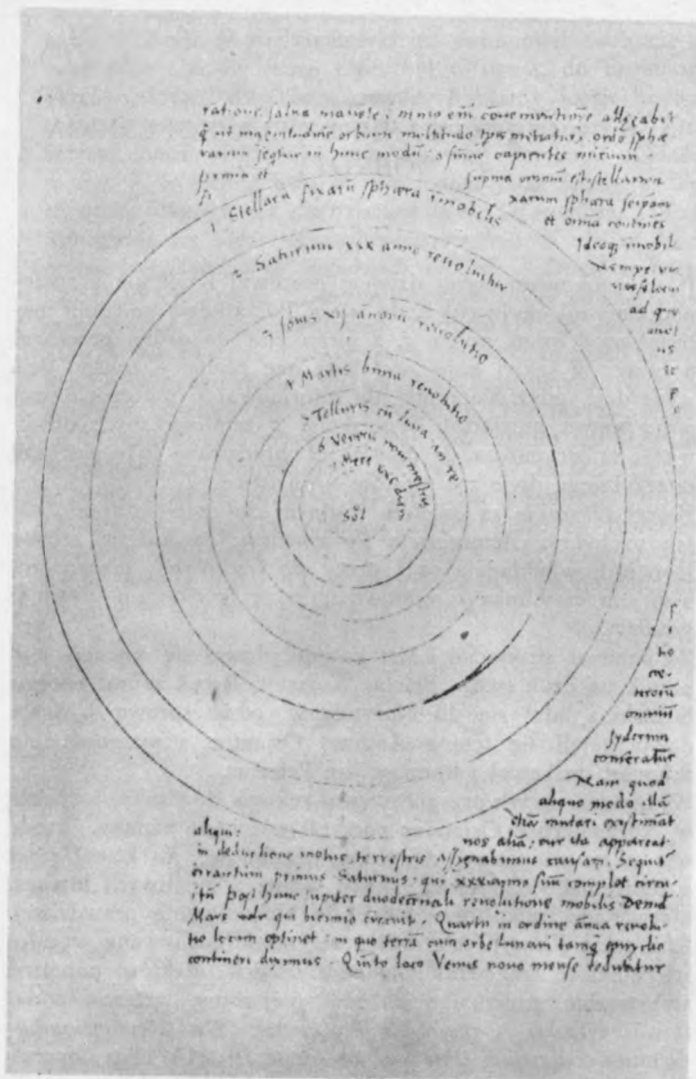 ratione salva manente; nemo em̄ convenientiorē allegabit
q̄ ut magnitudinē orbium multitudo tp̄is metiatur, ordo sphæ
rarum seqtur in hunc modū: a sum̄o capientes initium
prima et suprema omniū est stellarum
fi xarum sphæra seipsam
et omnia continēs
Ideoq̄ im̄obil
Nempe un
versi locus
ad quē
mot
us
et
p
o
1 Stellarū fixarū sphæra im̄obilis
2 Saturnus xxx anno revolvitur
3 Jovis xij annorū revolutio
4 Martis bima revolutio
5 Telluris cū luna an re
6 Veneris nonimestris
7 Merc xxc dierū
Sol
s
i
tio
cæ-
terorū
omniū
syderum
conferatur
Nam quod
aliquo modo illā
etiā mutari existimāt
aliqui: nos aliā, cur ita appareat
in deductione motus terrestris assignabimus causam. Sequit̄
errantium primus Saturnus: qui xxx anno suū complet circu-
itū post hunc Jupiter duodecennali revolutione mobilis Deind
Mars vole qui biennio circuit. Quartū in ordine annua revolu-
tio locum optinet: in quo terrā cum orbe lunari tamq̄ epicyclio
contineri diximus. Quinto loco Venus nono mense reducitur